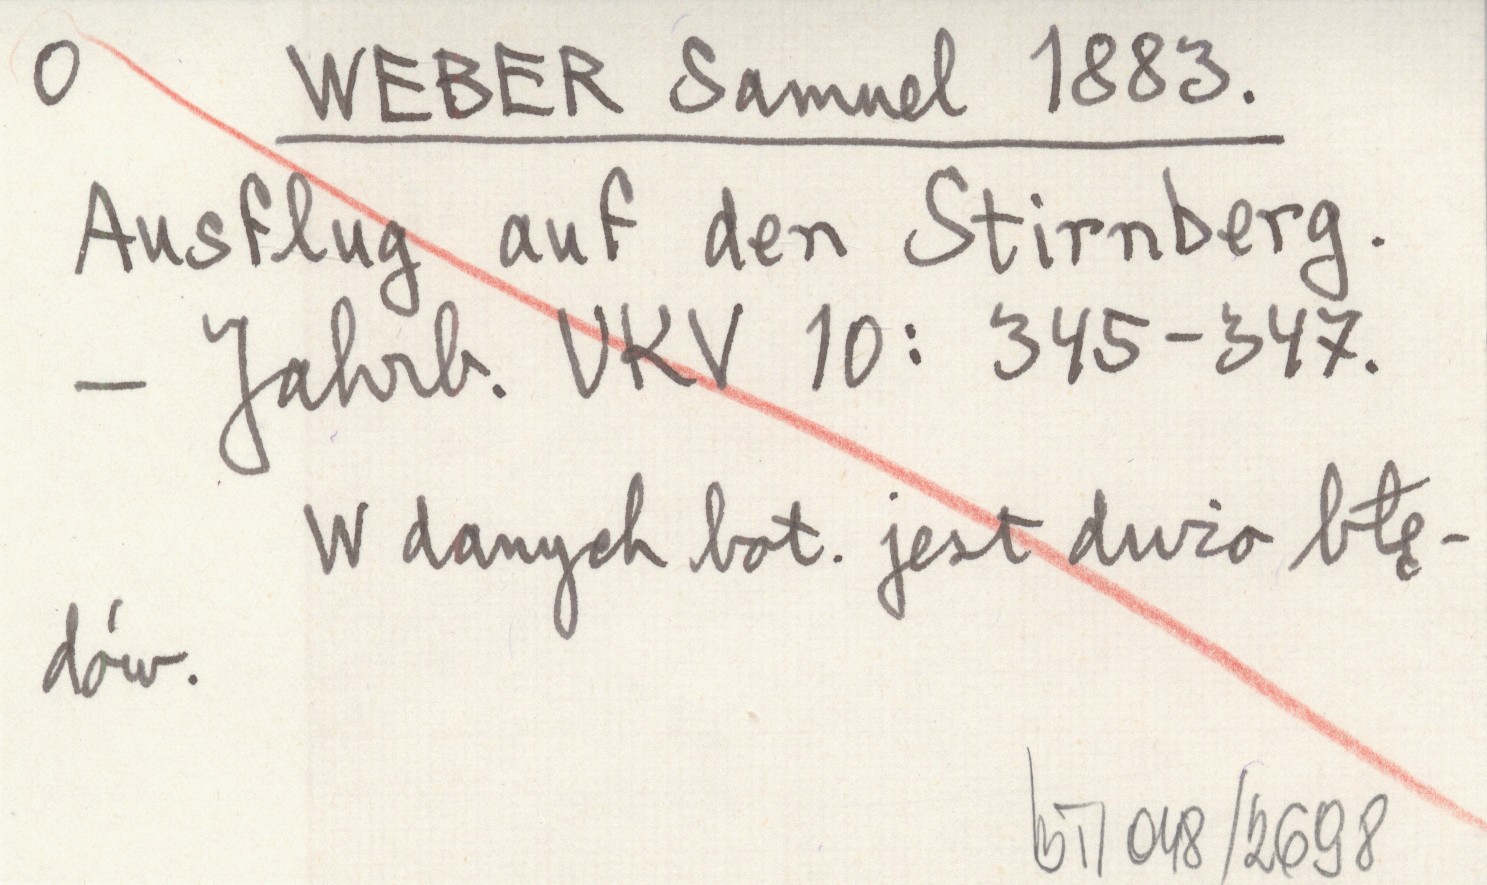 O WEBER Samuel 1883.
Ausflug auf den Stirnberg.
— Jahrb. VKV 10: 345-347.
W danych bot. jest dużo błę-
dów.
048/2698